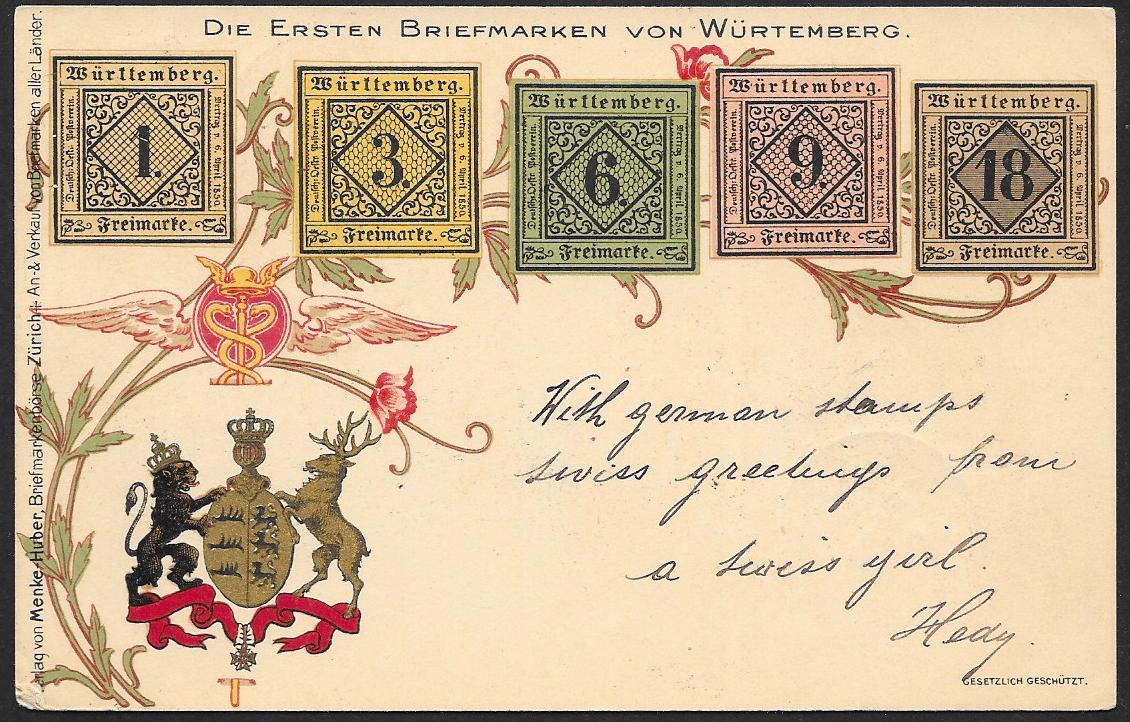 DIE ERSTEN BRIEFMARKEN VON WÜRTEMBERG.
Württemberg.
Deutsch: Oestr. Postverein.
1.
Vertrag v. 6. April 1850.
Freimarke.
Württemberg.
Deutsch: Oestr. Postverein.
3.
Vertrag v. 6. April 1850.
Freimarke.
Württemberg.
Deutsch: Oestr. Postverein.
6.
Vertrag v. 6. April 1850.
Freimarke.
Württemberg.
Deutsch: Oestr. Postverein.
9.
Vertrag v. 6. April 1850.
Freimarke.
Württemberg.
Deutsch: Oestr. Postverein.
18
Vertrag v. 6. April 1850.
Freimarke.
With german stamps
swiss greetings from
a swiss girl.
Hedy.
GESETZLICH GESCHÜTZT.
von Menke-Huber, Briefmarkenbörse Zürich 4. An- & Verkauf von Briefmarken aller Länder.